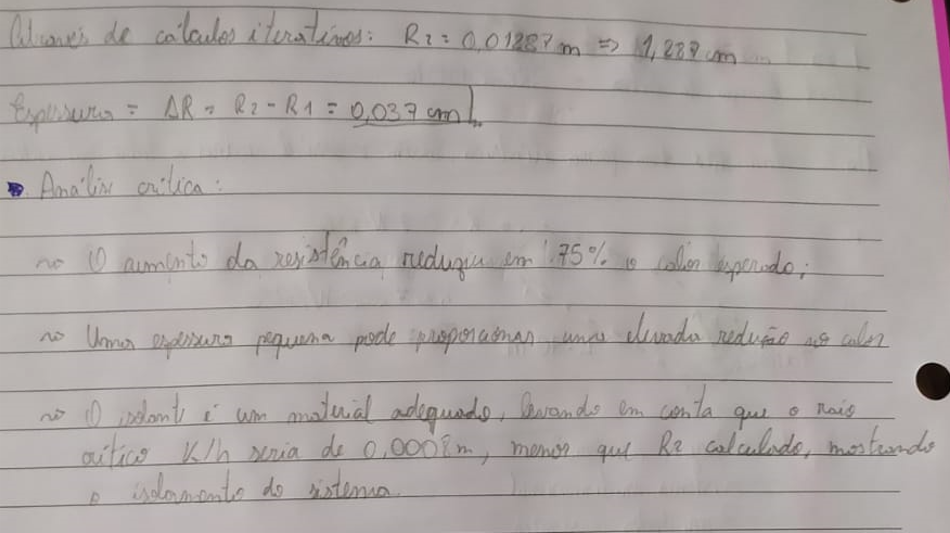 Através de cálculos iterativos: R2 = 0,01287 m => 1,287 cm
Espessura = ΔR = R2 - R1 = 0,037 cm
Análise crítica:
O aumento da resistência reduziu em 75% o calor esperado;
Uma espessura pequena pode proporcionar uma elevada redução no calor
O isolante é um material adequado, levando em conta que o raio
crítico K/h seria de 0,0008m, menor que R2 calculado, mostrando
o isolamento do sistema.